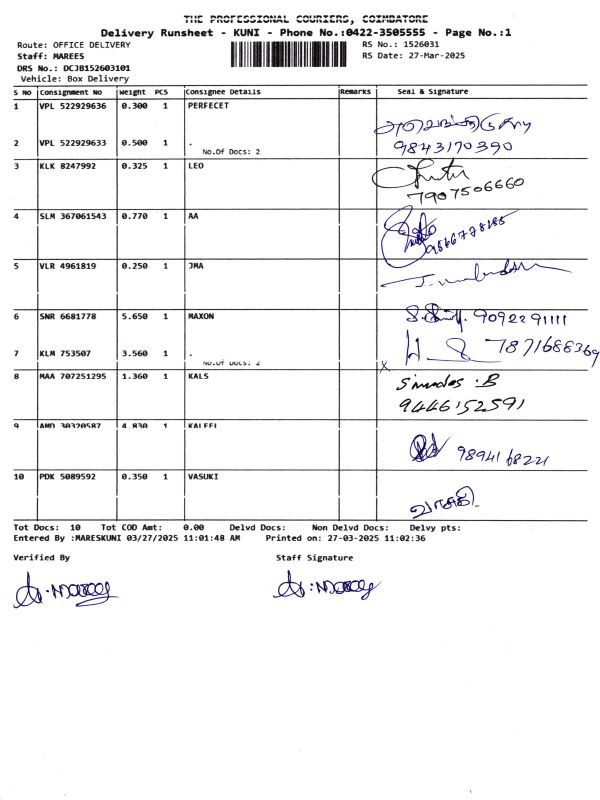 THE PROFESSIONAL COURIERS, COIMBATORE
Delivery Runsheet - KUNI - Phone No.:0422-3505555 - Page No.:1
Route: OFFICE DELIVERY RS No.: 1526031
Staff: MAREES RS Date: 27-Mar-2025
DRS No.: DCJB152603101
Vehicle: Box Delivery
S No Consignment No Weight PCS Consignee Details Remarks Seal & Signature
1 VPL 522929636 0.300 1 PERFECET
2 VPL 522929633 0.500 1 . 9843170390
No.Of Docs: 2
3 KLK 8247992 0.325 1 LEO
7907506660
4 SLM 367061543 0.770 1 AA
5 VLR 4961819 0.250 1 JMA
6 SNR 6681778 5.650 1 MAXON 9092291111
7 KLM 753507 3.560 1 .
No.Of Docs: 2
8 MAA 707251295 1.360 1 KALS
9446152591
9 AMD 30320587 4.830 1 KALEEL
9894168221
10 PDK 5089592 0.350 1 VASUKI
வாசுகி
Tot Docs: 10 Tot COD Amt: 0.00 Delvd Docs: Non Delvd Docs: Delvy pts:
Entered By :MARESKUNI 03/27/2025 11:01:48 AM Printed on: 27-03-2025 11:02:36
Verified By Staff Signature